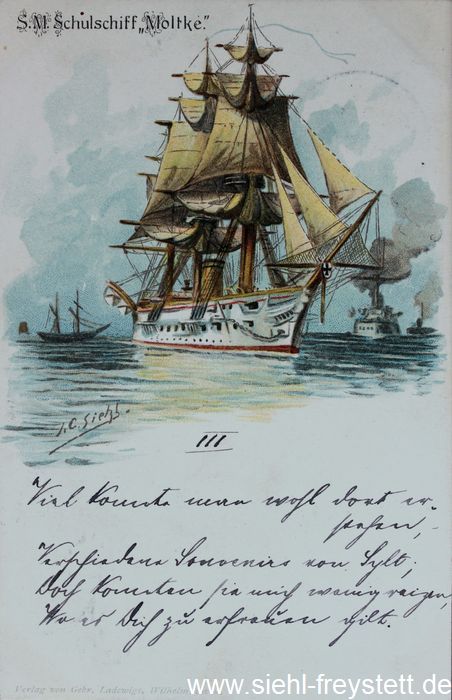 S.M. Schulschiff „Moltke."
III
Viel konnte man wohl dort er-
stehen,
Verschiedene Souvenirs von Sylt,
Doch konnten sie mich wenig reizen,
Wo es Dich zu erfreuen gilt.
Verlag von Gebr. Ladewigs, Wilhelm
www.siehl-freystett.de